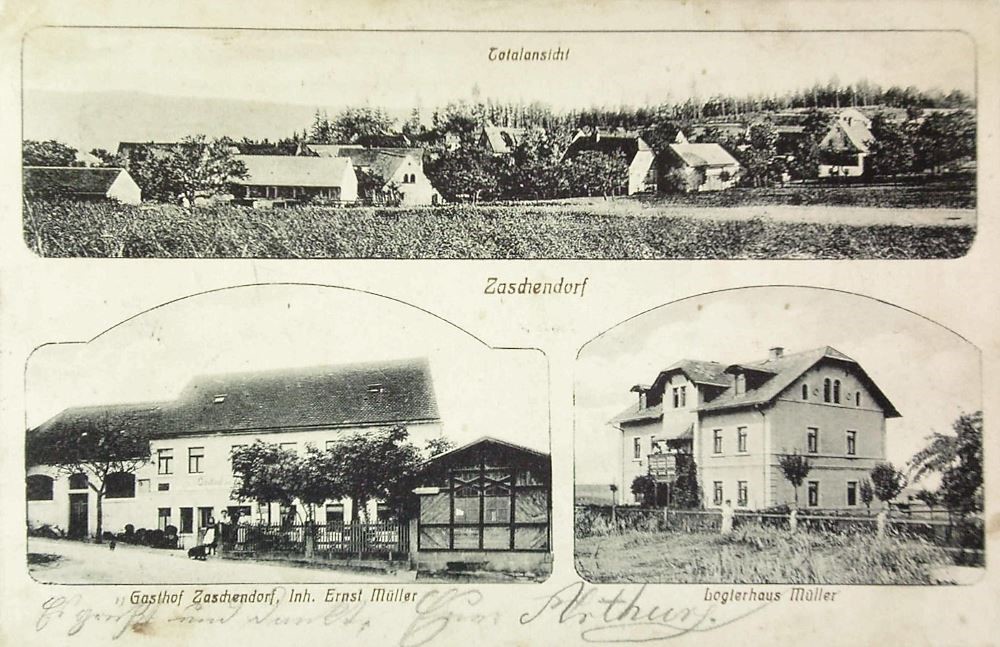 Totalansicht
Zaschendorf
Gasthof Zaschendorf, Inh. Ernst Müller
Logierhaus Müller
Es grüßt und dankt, Euer Arthur.